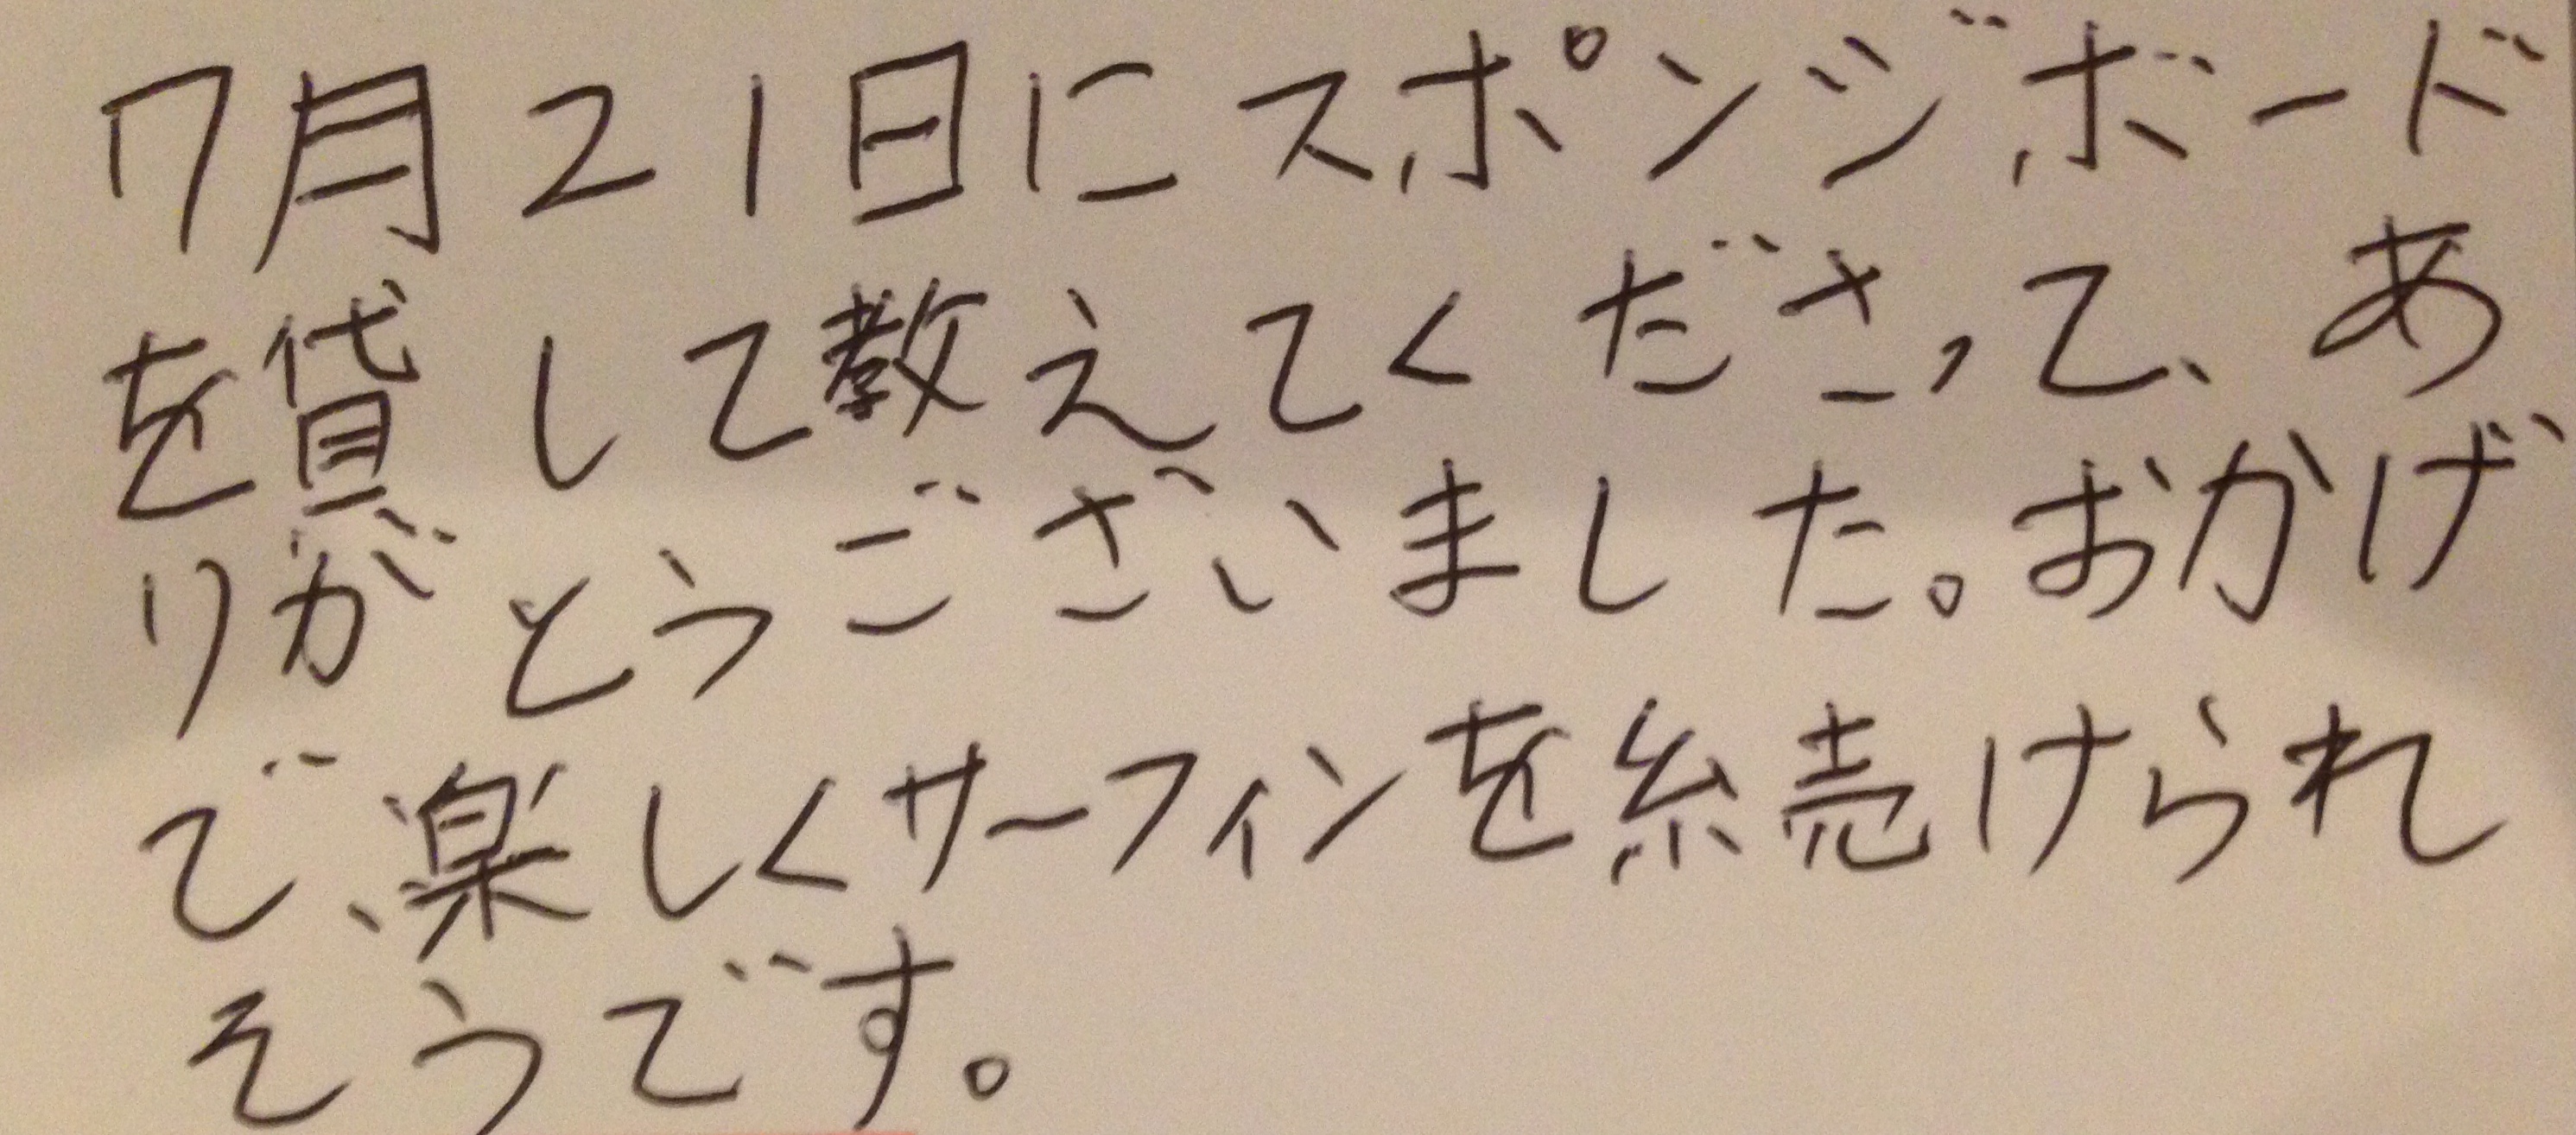 7月21日にスポンジボード
を貸して教えてくださって、あ
りがとうございました。おかげ
で、楽しくサーフィンを続けられ
そうです。